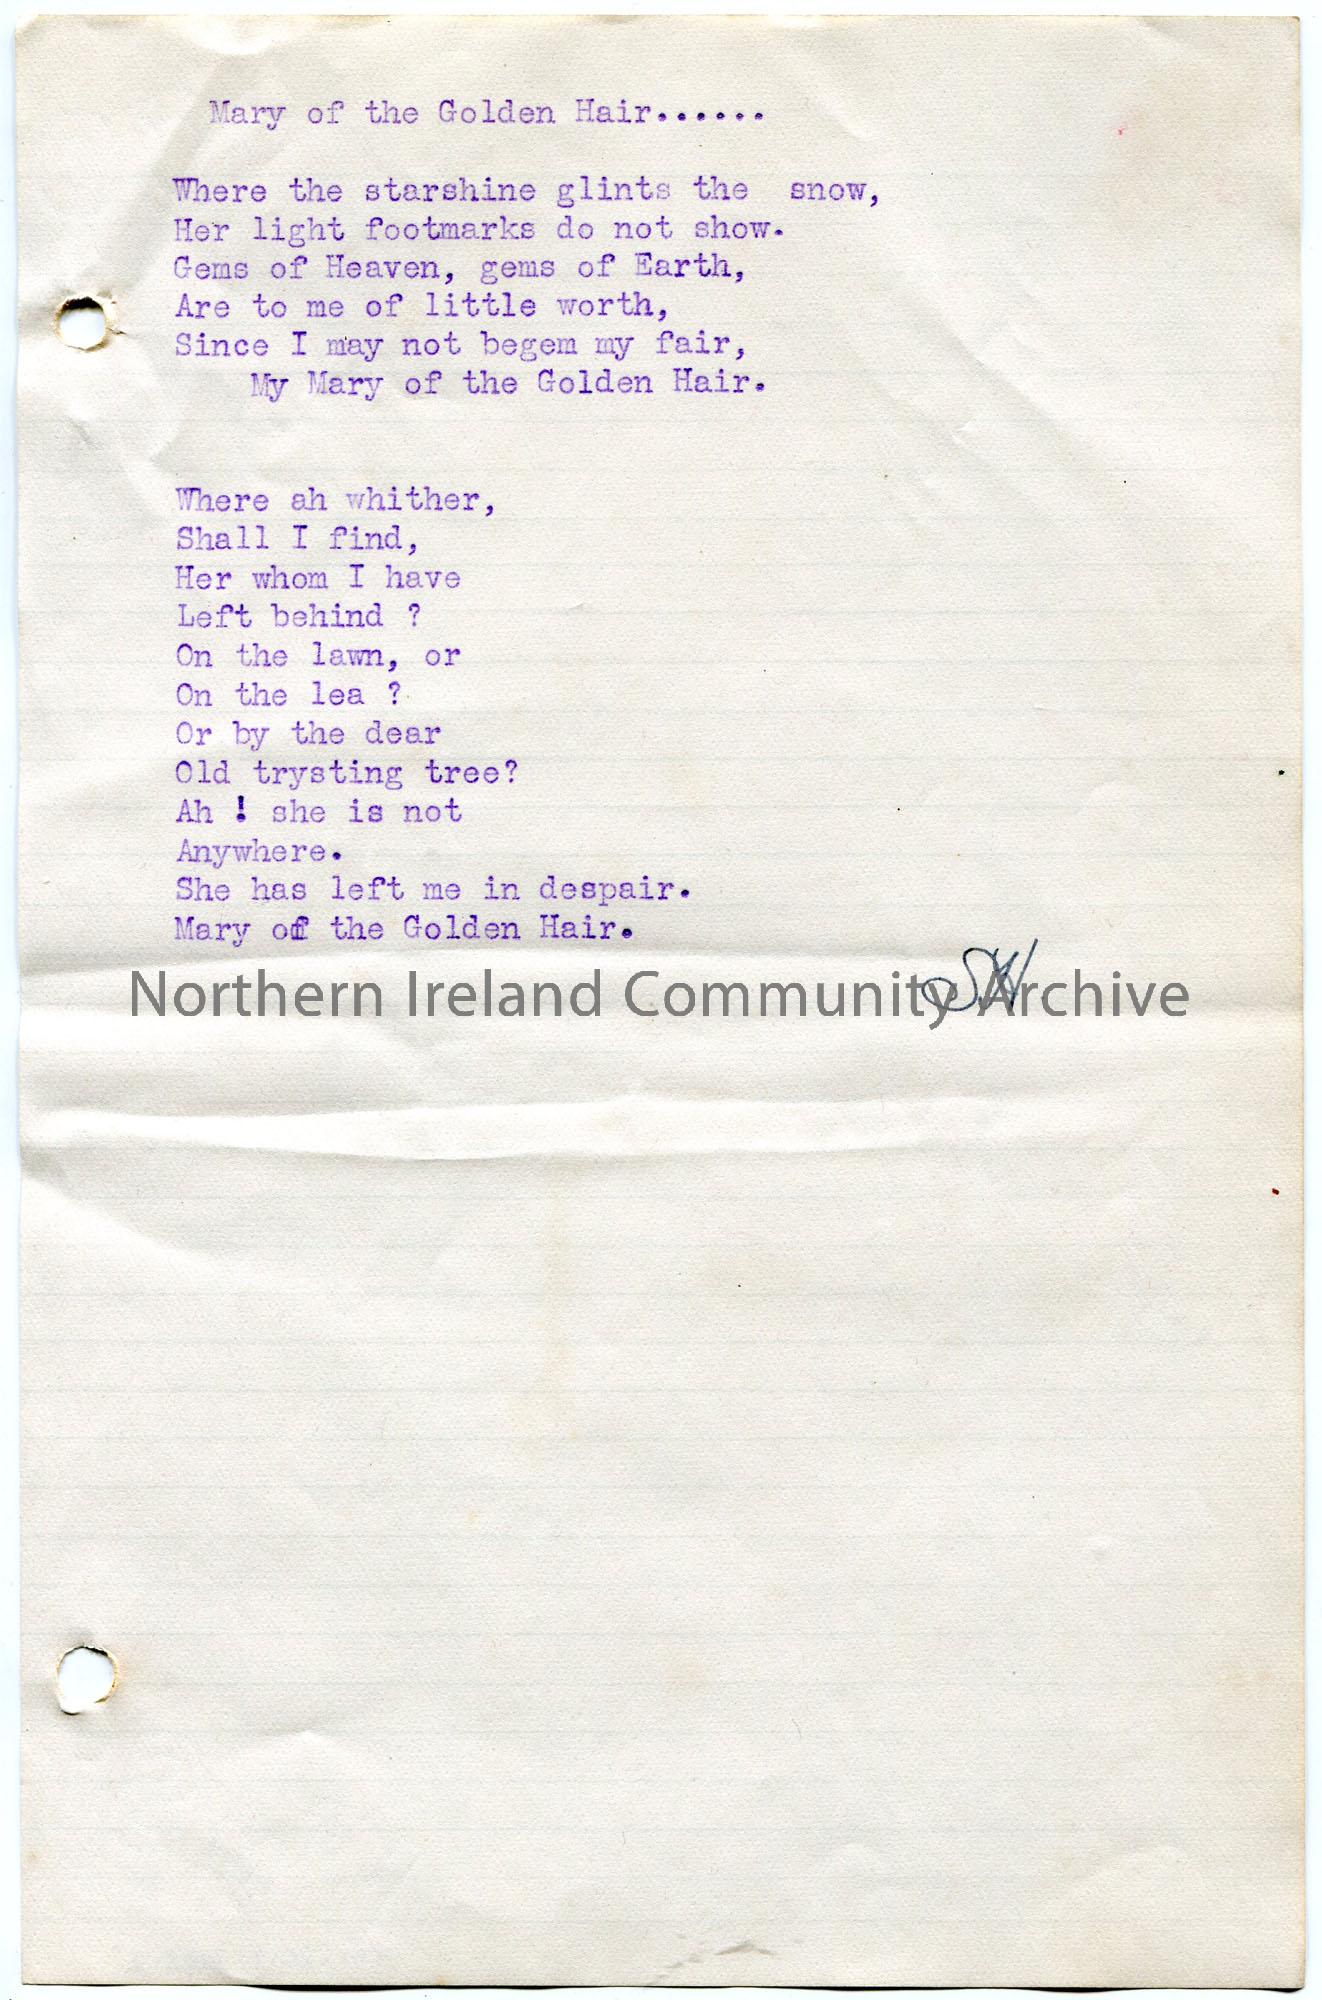 Mary of the Golden Hair......
Where the starshine glints the snow,
Her light footmarks do not show.
Gems of Heaven, gems of Earth,
Are to me of little worth,
Since I may not begem my fair,
My Mary of the Golden Hair.
Where ah whither,
Shall I find,
Her whom I have
Left behind ?
On the lawn, or
On the lea ?
Or by the dear
Old trysting tree?
Ah ! she is not
Anywhere.
She has left me in despair.
Mary of the Golden Hair.
Northern Ireland Community Archive